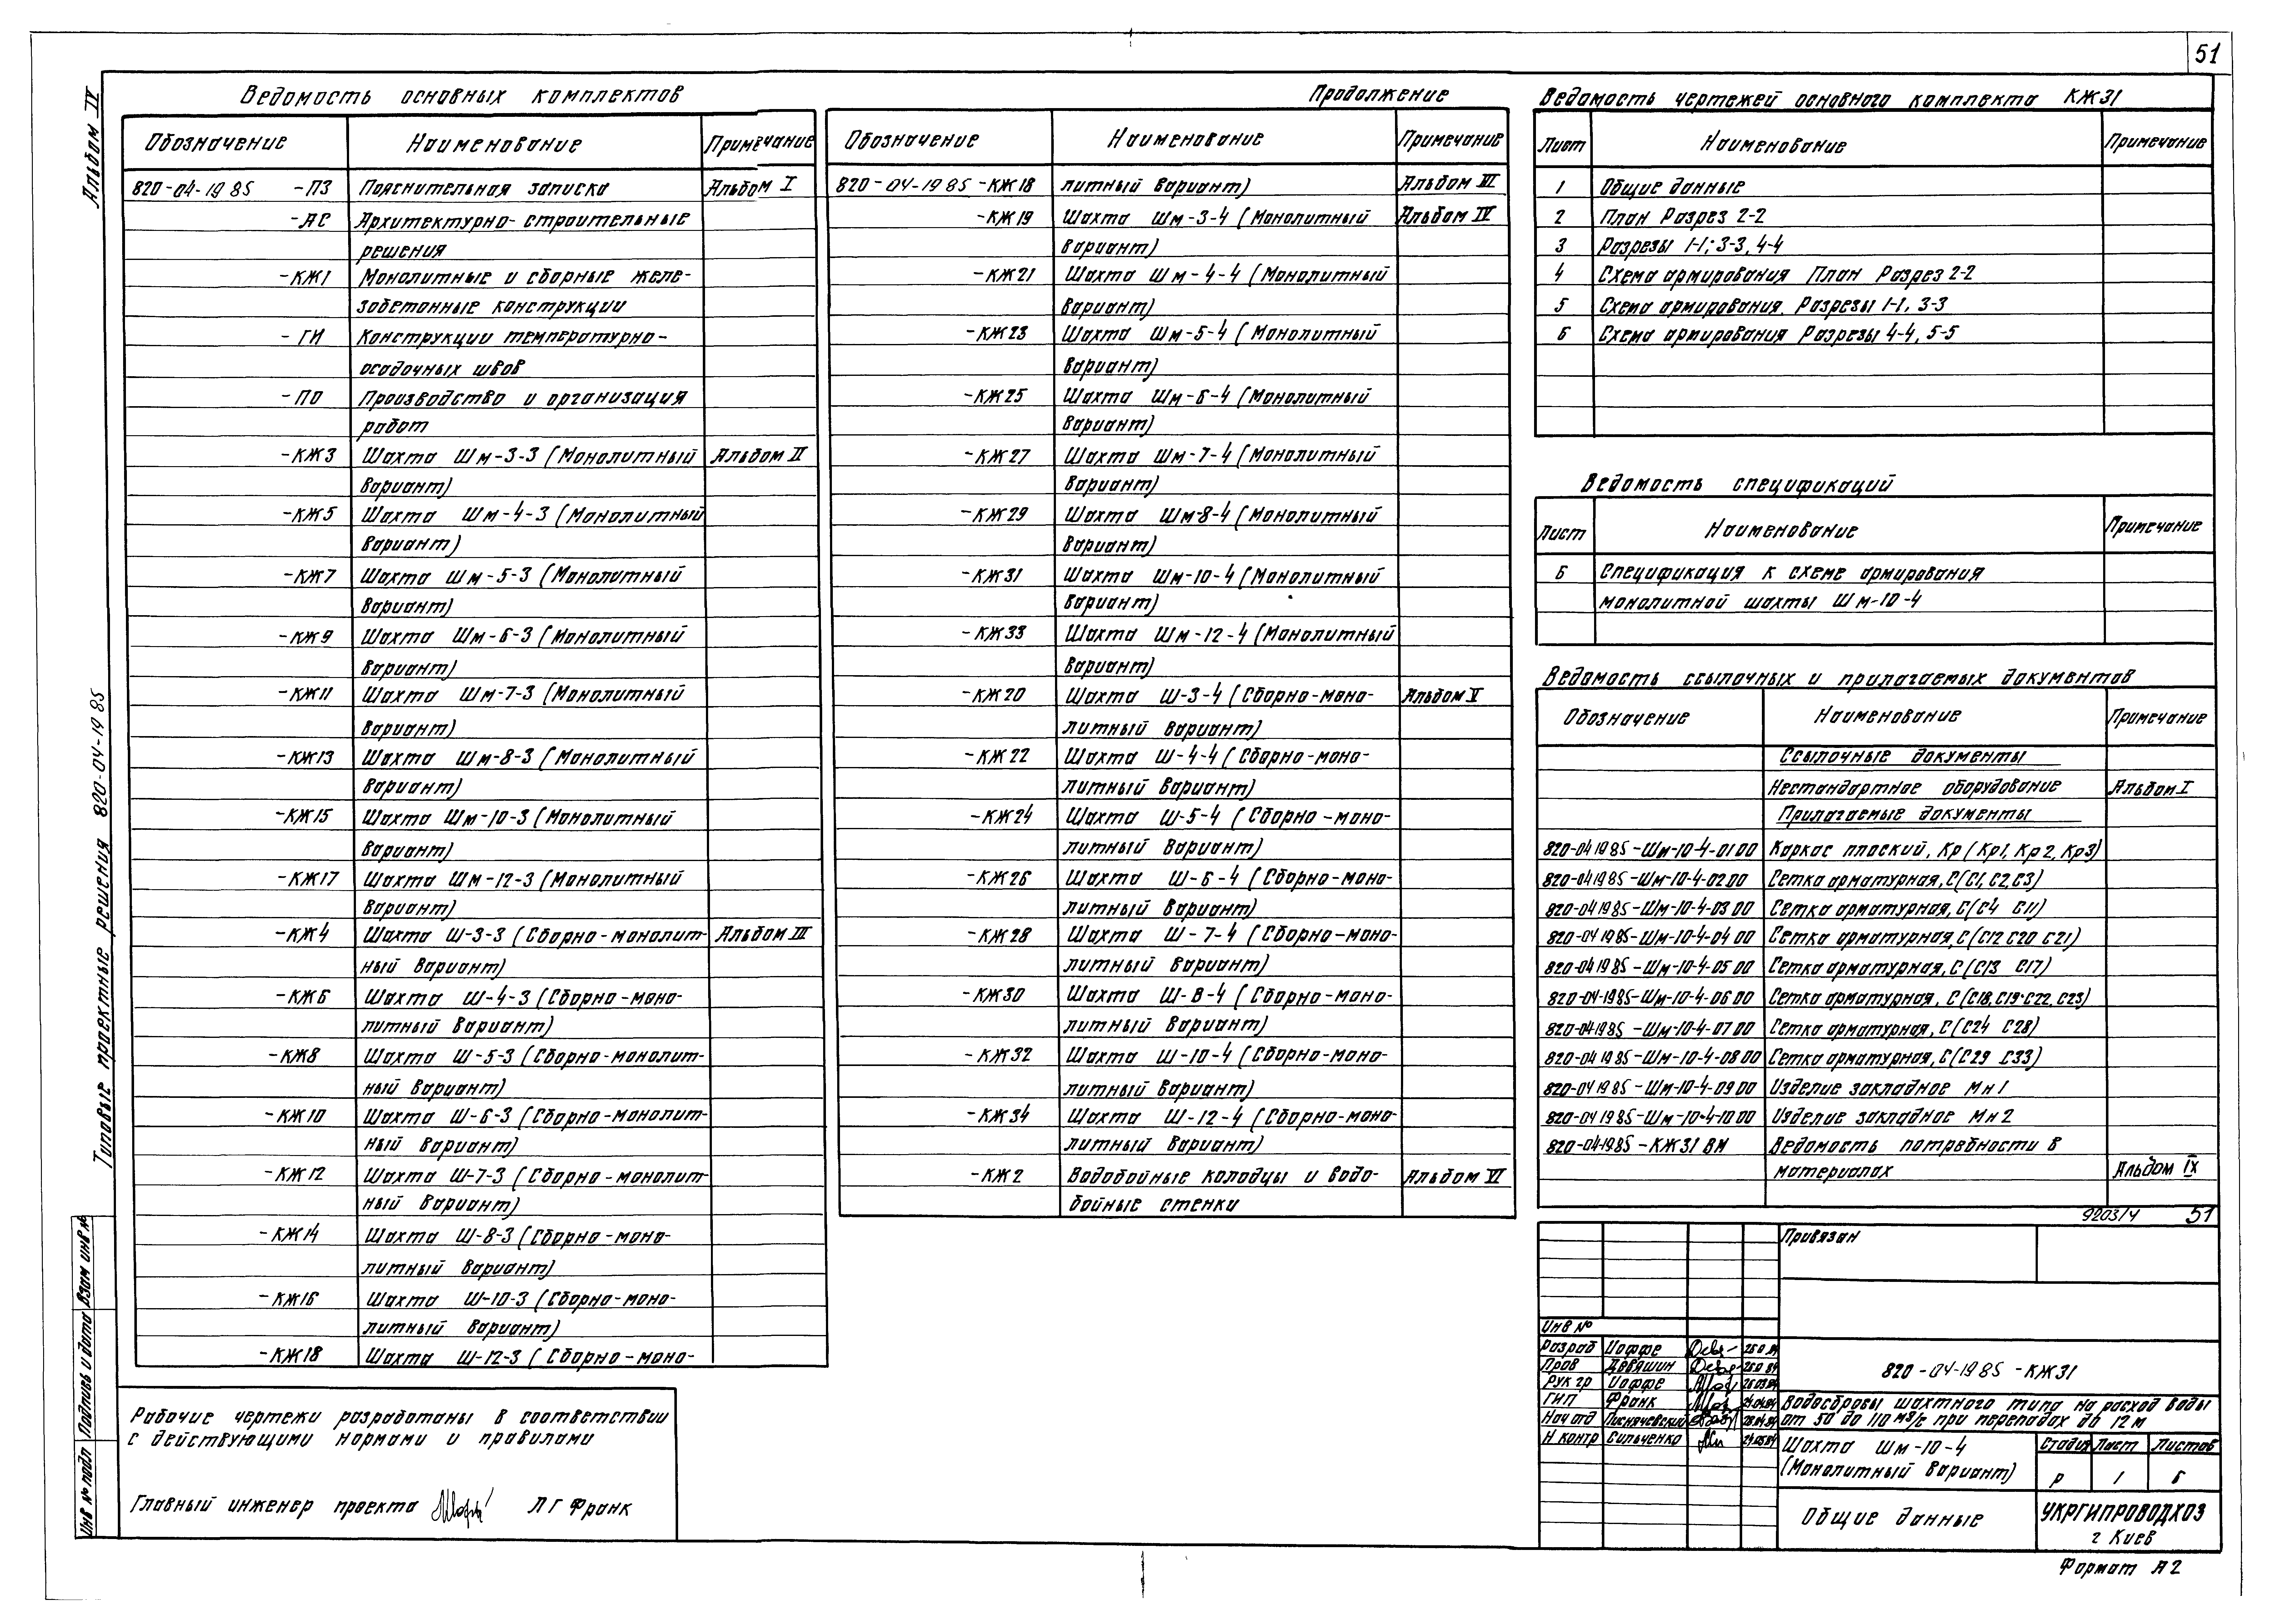 51
Альбом IV
Типовые проектные решения 820-04-19 85
Инв № подл Подпись и дата Взам инв №
Ведомость основных комплектов
Обозначение Наименование Примечание
820-04-19 85 -ПЗ Пояснительная записка Альбом I
-АС Архитектурно-строительные
решения
-КЖ1 Монолитные и сборные желе-
зобетонные конструкции
-ГИ Конструкции температурно-
осадочных швов
-ПО Производство и организация
работ
-КЖ3 Шахта Шм-3-3 (Монолитный Альбом II
вариант)
-КЖ5 Шахта Шм-4-3 (Монолитный
вариант)
-КЖ7 Шахта Шм-5-3 (Монолитный
вариант)
-КЖ9 Шахта Шм-6-3 (Монолитный
вариант)
-КЖ11 Шахта Шм-7-3 (Монолитный
вариант)
-КЖ13 Шахта Шм-8-3 (Монолитный
вариант)
-КЖ15 Шахта Шм-10-3 (Монолитный
вариант)
-КЖ17 Шахта Шм-12-3 (Монолитный
вариант)
-КЖ4 Шахта Ш-3-3 (Сборно-монолит- Альбом III
ный вариант)
-КЖ6 Шахта Ш-4-3 (Сборно-моно-
литный вариант)
-КЖ8 Шахта Ш-5-3 (Сборно-монолит-
ный вариант)
-КЖ10 Шахта Ш-6-3 (Сборно-монолит-
ный вариант)
-КЖ12 Шахта Ш-7-3 (Сборно-монолит-
ный вариант)
-КЖ14 Шахта Ш-8-3 (Сборно-моно-
литный вариант)
-КЖ16 Шахта Ш-10-3 (Сборно-моно-
литный вариант)
-КЖ18 Шахта Ш-12-3 (Сборно-моно-
Продолжение
Обозначение Наименование Примечание
820-04-19 85 -КЖ18 литный вариант) Альбом III
-КЖ19 Шахта Шм-3-4 (Монолитный Альбом IV
вариант)
-КЖ21 Шахта Шм-4-4 (Монолитный
вариант)
-КЖ23 Шахта Шм-5-4 (Монолитный
вариант)
-КЖ25 Шахта Шм-6-4 (Монолитный
вариант)
-КЖ27 Шахта Шм-7-4 (Монолитный
вариант)
-КЖ29 Шахта Шм-8-4 (Монолитный
вариант)
-КЖ31 Шахта Шм-10-4 (Монолитный
вариант)
-КЖ33 Шахта Шм-12-4 (Монолитный
вариант)
-КЖ20 Шахта Ш-3-4 (Сборно-моно- Альбом V
литный вариант)
-КЖ22 Шахта Ш-4-4 (Сборно-моно-
литный вариант)
-КЖ24 Шахта Ш-5-4 (Сборно-моно-
литный вариант)
-КЖ26 Шахта Ш-6-4 (Сборно-моно-
литный вариант)
-КЖ28 Шахта Ш-7-4 (Сборно-моно-
литный вариант)
-КЖ30 Шахта Ш-8-4 (Сборно-моно-
литный вариант)
-КЖ32 Шахта Ш-10-4 (Сборно-моно-
литный вариант)
-КЖ34 Шахта Ш-12-4 (Сборно-моно-
литный вариант)
-КЖ2 Водобойные колодцы и водо- Альбом VI
бойные стенки
Ведомость чертежей основного комплекта КЖ31
Лист Наименование Примечание
1 Общие данные
2 План Разрез 2-2
3 Разрезы 1-1; 3-3, 4-4
4 Схема армирования План Разрез 2-2
5 Схема армирования. Разрезы 1-1, 3-3
6 Схема армирования Разрезы 4-4, 5-5
Ведомость спецификаций
Лист Наименование Примечание
6 Спецификация к схеме армирования
монолитной шахты Шм-10-4
Ведомость ссылочных и прилагаемых документов
Обозначение Наименование Примечание
Ссылочные документы
Нестандартное оборудование Альбом I
Прилагаемые документы
820-04 19 85-Шм-10-4-01 00 Каркас плоский, Кр (Кр1, Кр2, Кр3)
820-04 19 85-Шм-10-4-02 00 Сетка арматурная, С(С1, С2, С3)
820-04 19 85-Шм-10-4-03 00 Сетка арматурная, С(С4 С11)
820-04 19 85-Шм-10-4-04 00 Сетка арматурная, С(С12 С20 С21)
820-04 19 85-Шм-10-4-05 00 Сетка арматурная, С(С13 С17)
820-04-19 85-Шм-10-4-06 00 Сетка арматурная, С(С18, С19-С22, С23)
820-04 19 85-Шм-10-4-07 00 Сетка арматурная, С(С24 С28)
820-04 19 85-Шм-10-4-08 00 Сетка арматурная, С(С29 С33)
820-04 19 85-Шм-10-4-09 00 Изделие закладное Мн1
820-04 19 85-Шм-10-4-10 00 Изделие закладное Мн2
820-04-19 85-КЖ31 ВМ Ведомость потребности в
материалах Альбом IX
9203/4 51
Привязан
Инв №
Разраб Иоффе
Пров Девяшин
Рук гр Иоффе
ГИП Франк
Нач отд
Н контр Сильченко
820-04-19 85 -КЖ31
Водосбросы шахтного типа на расход воды
от 50 до 110 м³/с при перепадах до 12 м
Шахта Шм-10-4
(Монолитный вариант)
Стадия Лист Листов
Р 1 6
Общие данные
УКРГИПРОВОДХОЗ
г Киев
Формат А2
Рабочие чертежи разработаны в соответствии
с действующими нормами и правилами
Главный инженер проекта Л Г Франк